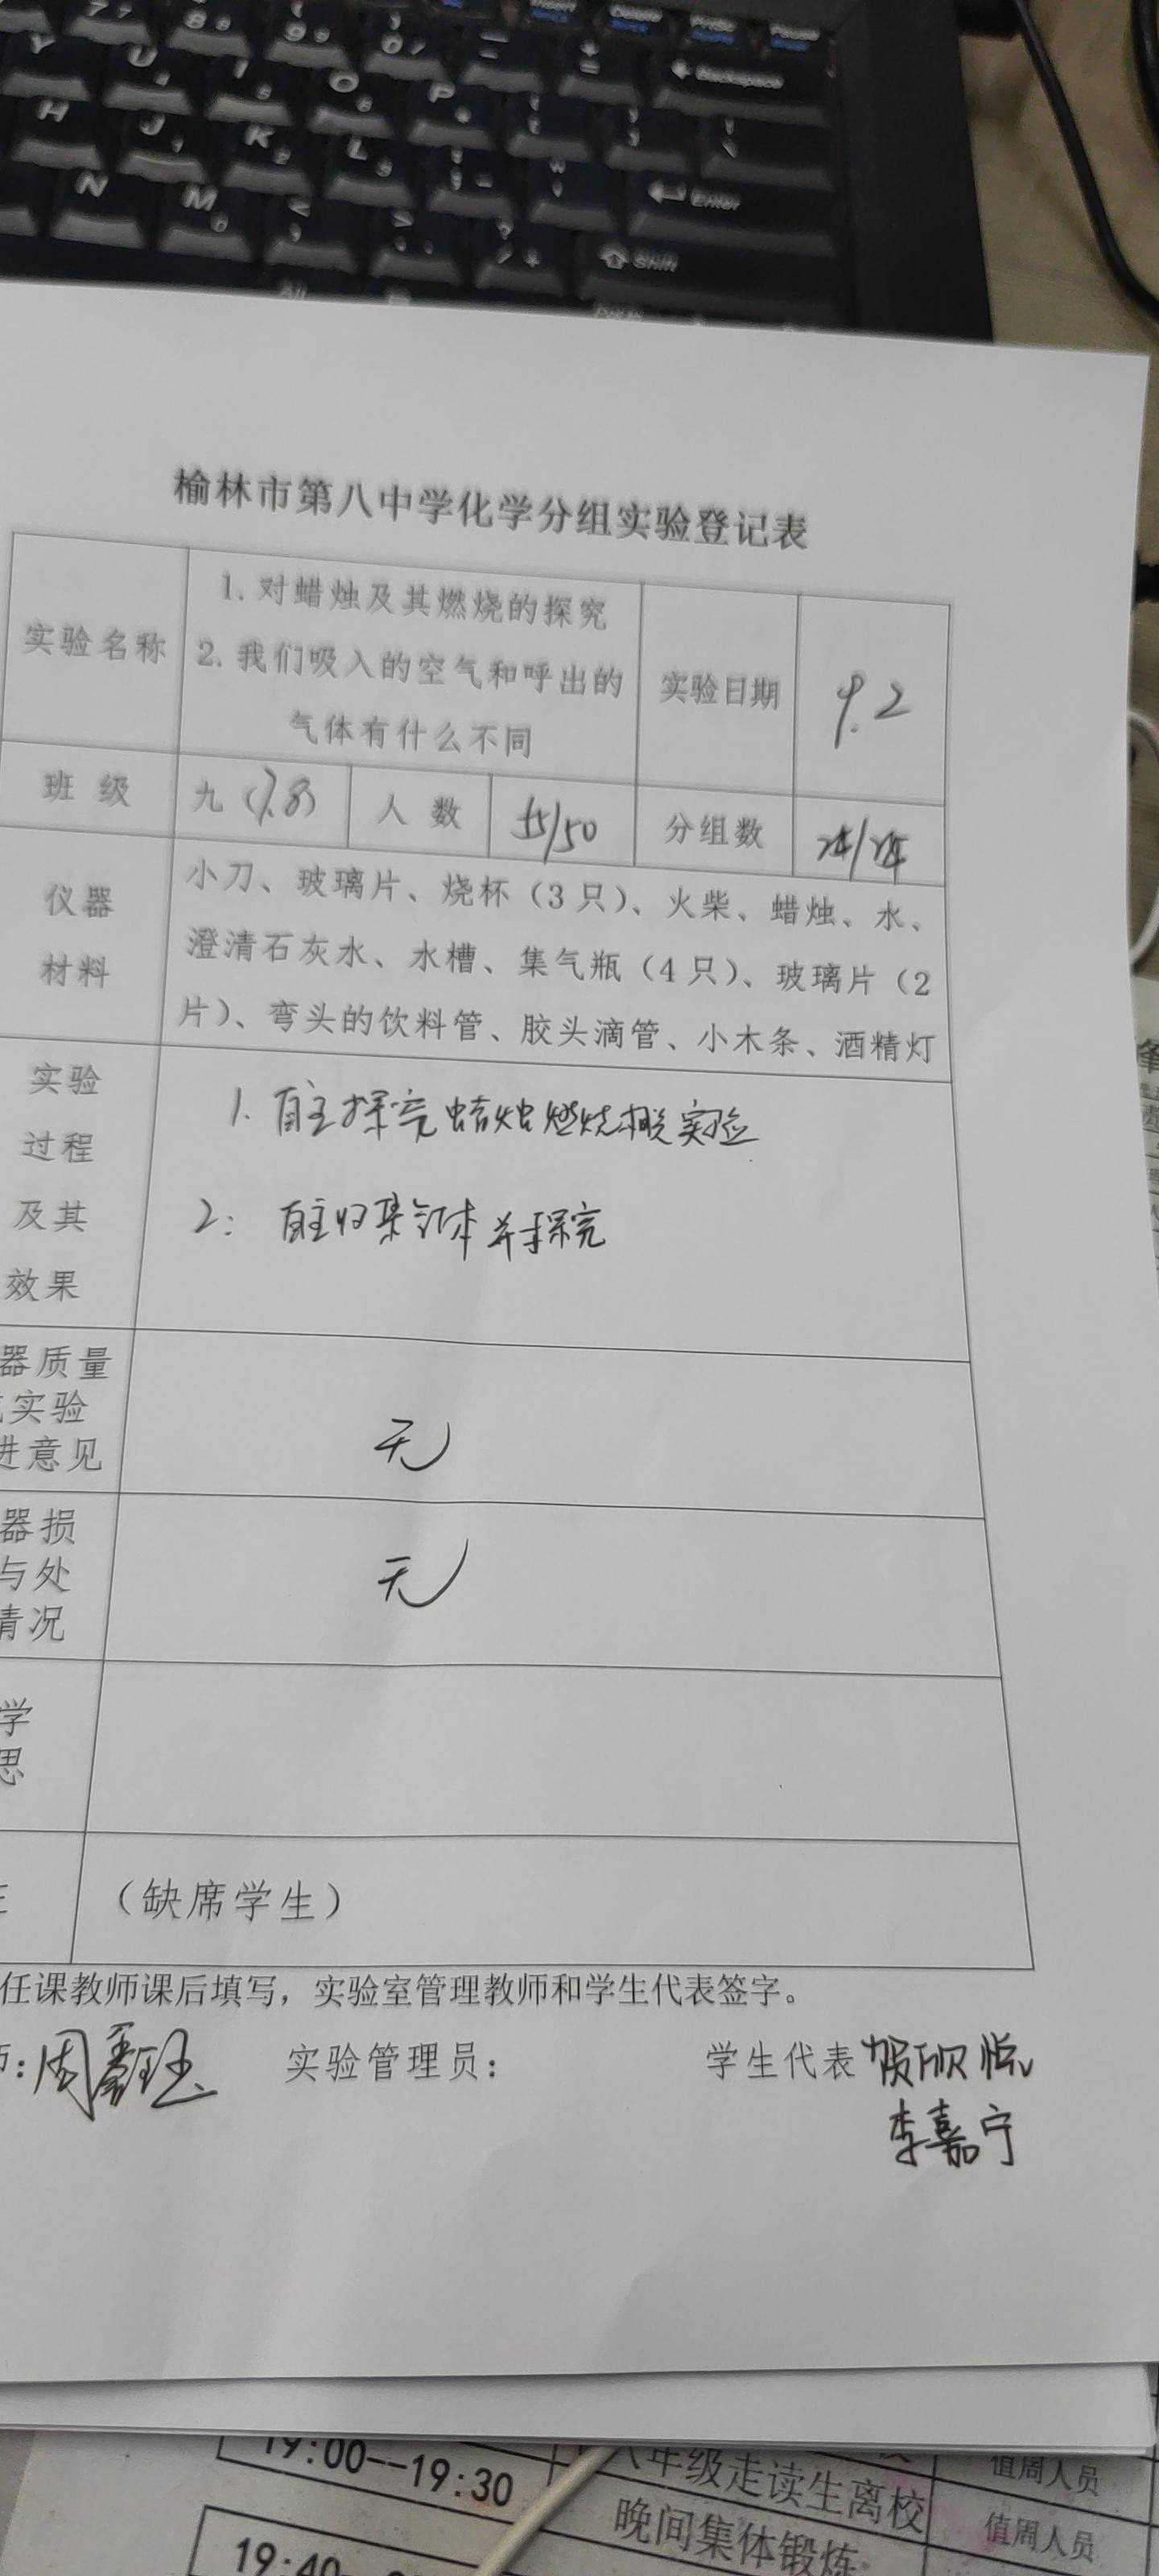 Backspace
Y U I O P
H J K L
Enter
N M
Shift
榆林市第八中学化学分组实验登记表
实验名称
1. 对蜡烛及其燃烧的探究
2. 我们吸入的空气和呼出的
气体有什么不同
实验日期
9.2
班 级
九（7.8）
人 数
55/50
分组数
仪器
材料
小刀、玻璃片、烧杯（3只）、火柴、蜡烛、水、
澄清石灰水、水槽、集气瓶（4只）、玻璃片（2
片）、弯头的饮料管、胶头滴管、小木条、酒精灯
实验
过程
及其
效果
1. 自主探究蜡烛燃烧相关实验
2: 自主收集气体并探究
器质量
实验
进意见
无
器损
与处
情况
无
学
思
（缺席学生）
任课教师课后填写，实验室管理教师和学生代表签字。
师：周
实验管理员：
学生代表 贺欣悦
李嘉宁
19:00--19:30
八年级走读生离校
值周人员
19:40
晚间集体锻炼
值周人员